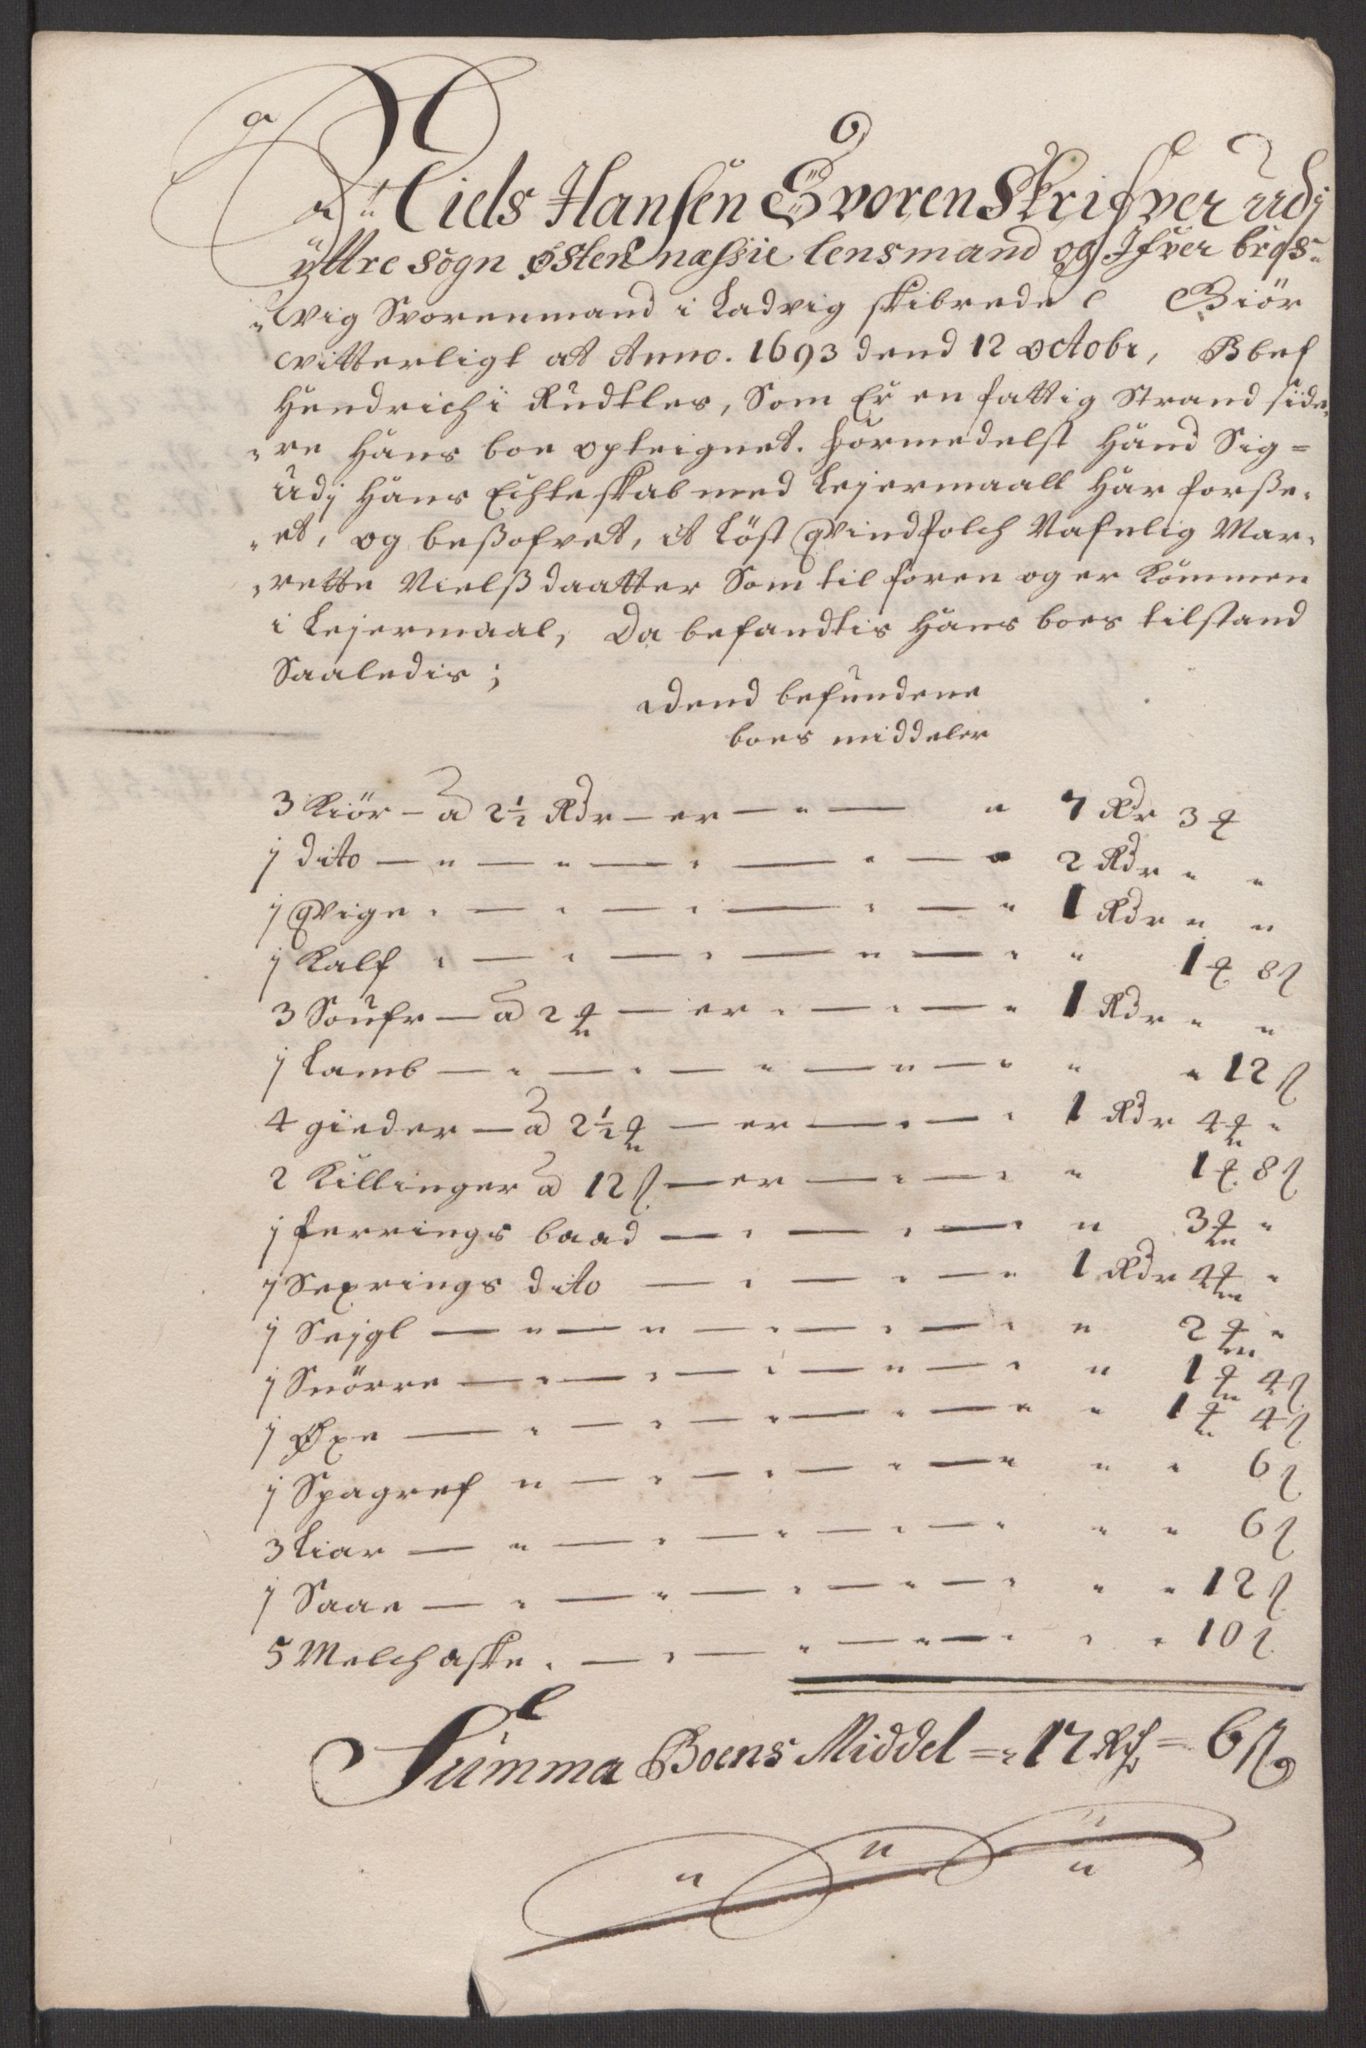 Niels Hansen Svoren Skrifver udj
ÿttre Sogn østen næssie lensmand og Ifver brqs-
vig Svorenmand i Ladvig skibrede Giör
vitterligt at Anno. 1693 dend 12 octobr, Blef
Hendrich i Rudtles, Som Er en fattig Strand side-
re Hans boe opteignet. formedelst Hand Sig=
Udj Hans Echteskab med Lejermaall Har forsze-
et, og beszofvet, it Löst qvindfolch Nafnlig Mar-
rette Nielszdaatter Som tilforen og er kommen
i Lejermaal, Da befandtis Hans boes tilstand
Saaledis;
Dend befundene
boes middeler
3 Kiör - a 2½ Rdr - er - 7 Rdr 3 ₰
1 dito - 2 Rdr " "
1 qvige - 1 Rdr " "
1 Kalf - " 1 ₰ 8 ß
3 Soufr - a 2 ₰ - er - 1 Rdr " "
1 Lamb - " " 12 ß
4 gieder - a 2½ ₰ - er - 1 Rdr 4 ₰ "
2 Killinger a 12 ß - er - " 1 ₰ 8 ß
1 ferrings baad - " 3 ₰ "
1 Sexrings dito - 1 Rdr 4 ₰ "
1 Sejgl - " 2 ₰ "
1 Snörre - " 1 ₰ 4 ß
1 Øxe - " 1 ₰ 4 ß
1 Spagref - " " 6 ß
3 Liar - " " 6 ß
1 Saae - " " 12 ß
5 Melch aske - " " 10 ß
Summa Boens Middel = 17 Rd = 6 ß